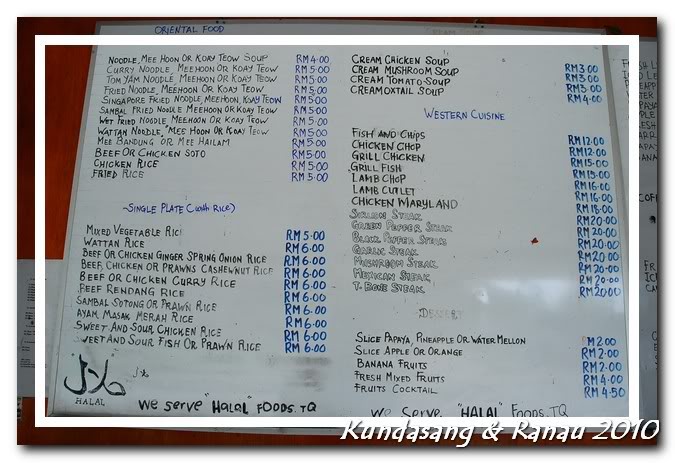 ORIENTAL FOOD
NOODLE, MEE HOON OR KOAY TEOW SOUP RM 4.00
CURRY NOODLE, MEEHOON OR KOAY TEOW RM 5.00
TOM YAM NOODLE, MEEHOON OR KOAY TEOW RM 5.00
FRIED NOODLE, MEEHOON OR KOAY TEOW RM 5.00
SINGAPORE FRIED NOODLE, MEEHOON, KOAY TEOW RM 5.00
SAMBAL FRIED NOODLE MEEHOON OR KOAY TEOW RM 5.00
WET FRIED NOODLE, MEEHOON OR KOAY TEOW RM 5.00
WATTAN NOODLE, MEE HOON OR KOAY TEOW RM 5.00
MEE BANDUNG OR MEE HAILAM RM 5.00
BEEF OR CHICKEN SOTO RM 5.00
CHICKEN RICE RM 5.00
FRIED RICE RM 5.00
~SINGLE PLATE (with RICE)
MIXED VEGETABLE RICE RM 5.00
WATTAN RICE RM 6.00
BEEF OR CHICKEN GINGER SPRING ONION RICE RM 6.00
BEEF, CHICKEN OR PRAWNS CASHEWNUT RICE RM 6.00
BEEF OR CHICKEN CURRY RICE RM 6.00
BEEF RENDANG RICE RM 6.00
SAMBAL SOTONG OR PRAWN RICE RM 6.00
AYAM MASAK MERAH RICE RM 6.00
SWEET AND SOUR CHICKEN RICE RM 6.00
SWEET AND SOUR FISH OR PRAWN RICE RM 6.00
حلال
HALAL
We SERVE "HALAL" FOODS. TQ
CREAM CHICKEN SOUP RM 3.00
CREAM MUSHROOM SOUP RM 3.00
CREAM TOMATO SOUP RM 3.00
CREAM OXTAIL SOUP RM 4.00
WESTERN CUISINE
FISH AND CHIPS RM 12.00
CHICKEN CHOP RM 12.00
GRILL CHICKEN RM 15.00
GRILL FISH RM 15.00
LAMB CHOP RM 16.00
LAMB CUTLET RM 16.00
CHICKEN MARYLAND RM 18.00
SIRLOIN STEAK RM 20.00
GREEN PEPPER STEAK RM 20.00
BLACK PEPPER STEAK RM 20.00
GARLIC STEAK RM 20.00
MUSHROOM STEAK RM 20.00
MEXICAN STEAK RM 20.00
T-BONE STEAK RM 20.00
DESSERT
SLICE PAPAYA, PINEAPPLE OR WATER MELLON M 2.00
SLICE APPLE OR ORANGE RM 2.00
BANANA FRUITS RM 2.00
FRESH MIXED FRUITS RM 4.00
FRUITS COCKTAIL RM 4.50
We SERVE "HALAL" FOODS. TQ
Kundasang & Ranau 2010